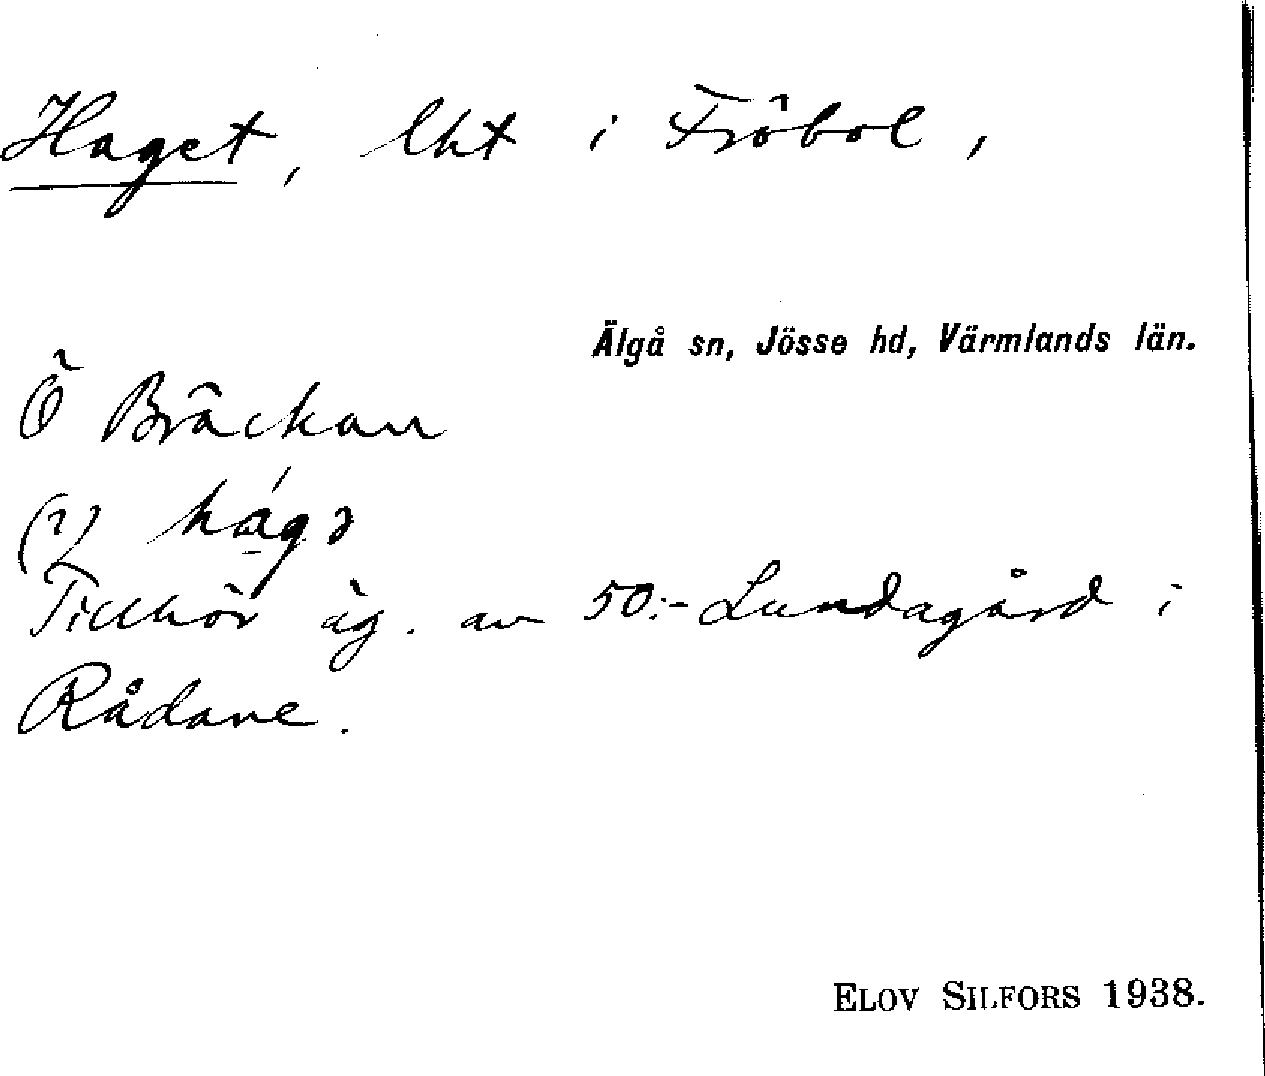 Haget, lht i Fröbol,
Älgå sn, Jösse hd, Värmlands län.
Ö Bräckan
(1) hág
Tillhör äg. av 50:- Lundagård i
Rådane.
ELOV SILFORS 1938.